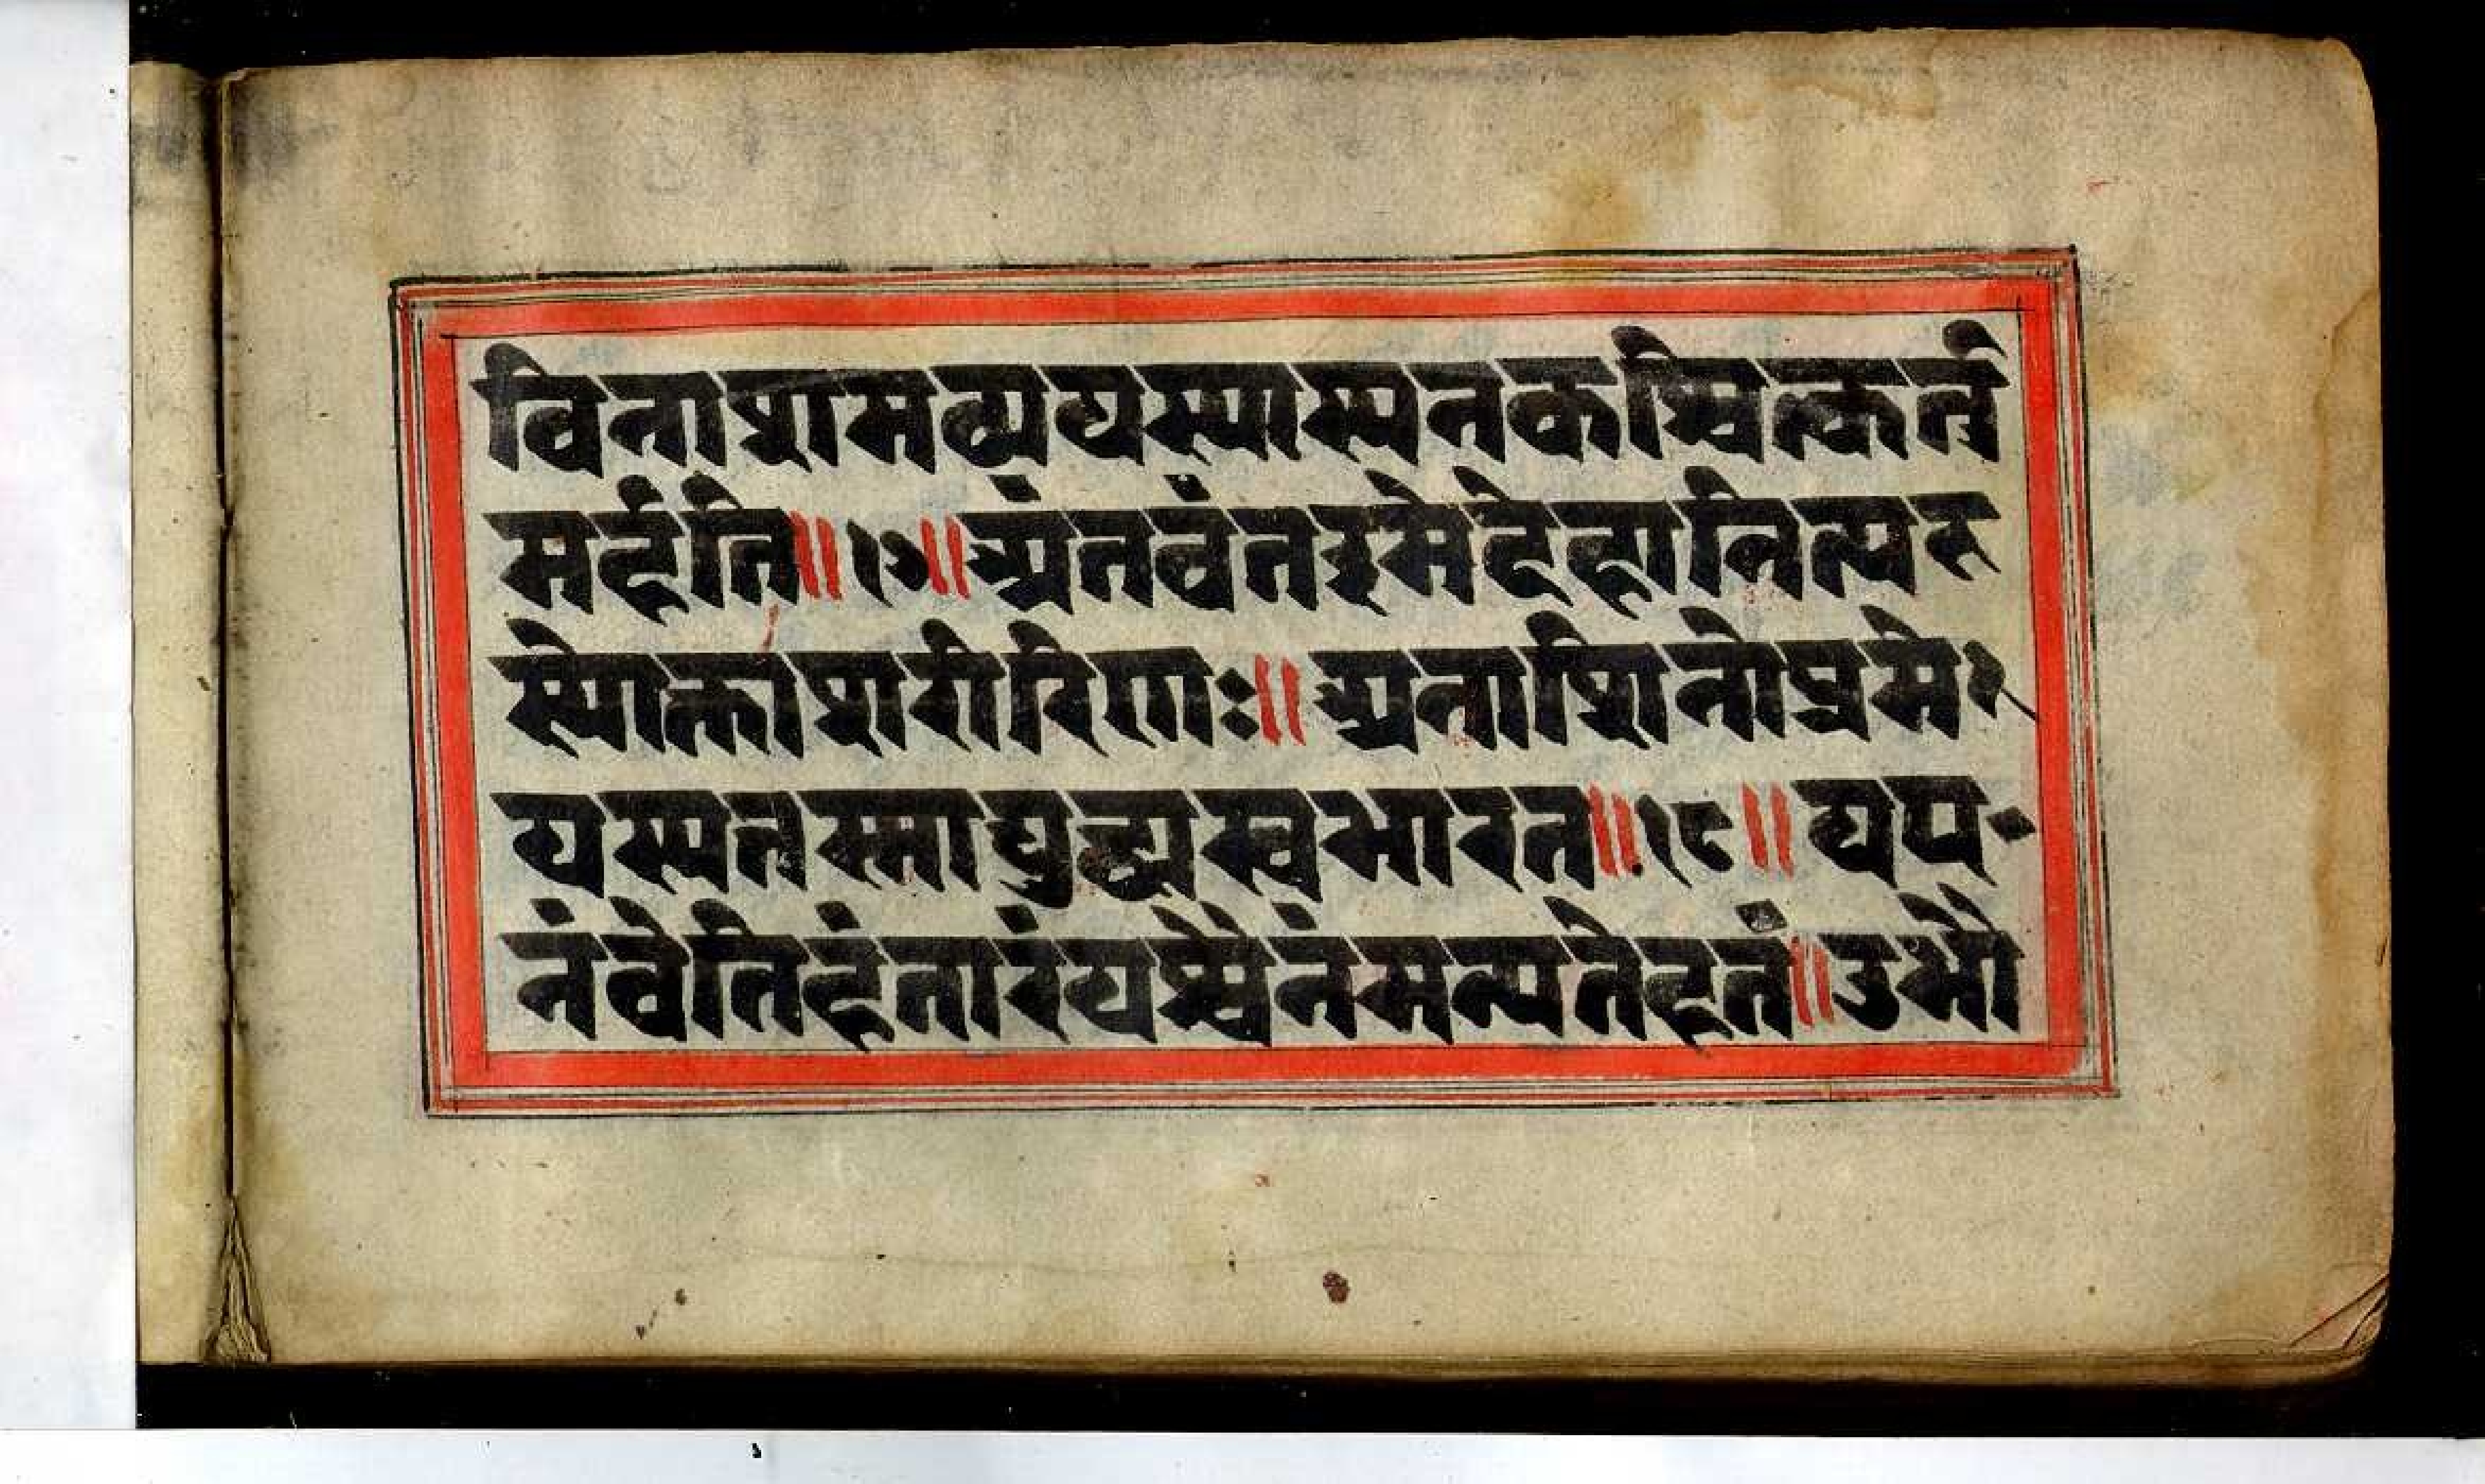 विनाशमव्ययस्यास्यनकश्चित्कर्तु
मर्हति॥१७॥अंतवंतइमेदेहानित्य
स्योक्ताशरीरिणः॥अनाशिनोप्रमे
यस्यतस्माद्युद्ध्यस्वभारत॥१८॥यए
नंवेतिहंतारंयश्चैनंमन्यतेहतं॥उभौ